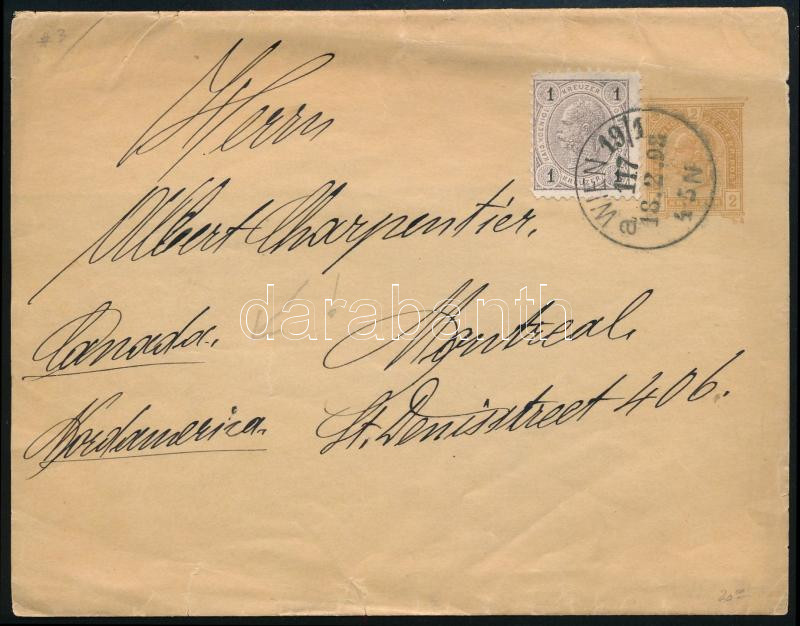 # 3
1 KREUZER 1
1 1
2
2
WIEN 19/1
117
18.2.92
4-5 N
a
Herrn
Albert Charpentier.
Canada. Montreal.
Nordamerica. St. Denisstreet 406.
darabanth
20.00